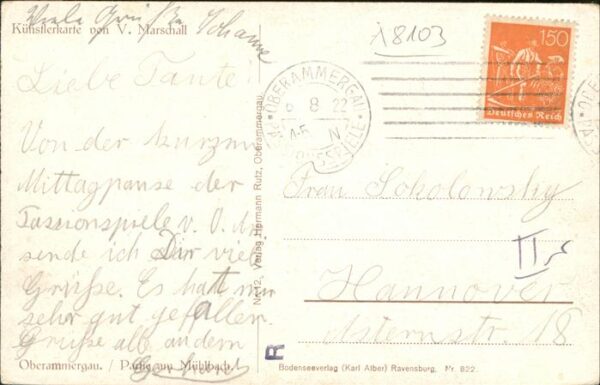 Viele Grüße
Künstlerkarte von V. Marschall
Johanne
Liebe Tante!
Von der kurzen
Mittagpause der
Passionspiele v. O. A.
sende ich Dir viel
Grüße. Es hat mir
sehr gut gefallen.
Grüße alb an dem
Gerhard
Oberammergau. / Partie am Mühlbach.
Nr. 12. Verlag Hermann Rutz, Oberammergau.
18103
OBERAMMERGAU
8 22
4-5 N
PASSIONSSPIELE
150
Deutsches Reich
Frau Sokolowsky
II
Hannover
Asternstr. 18
R
Bodenseeverlag (Karl Alber) Ravensburg. Nr. 822.